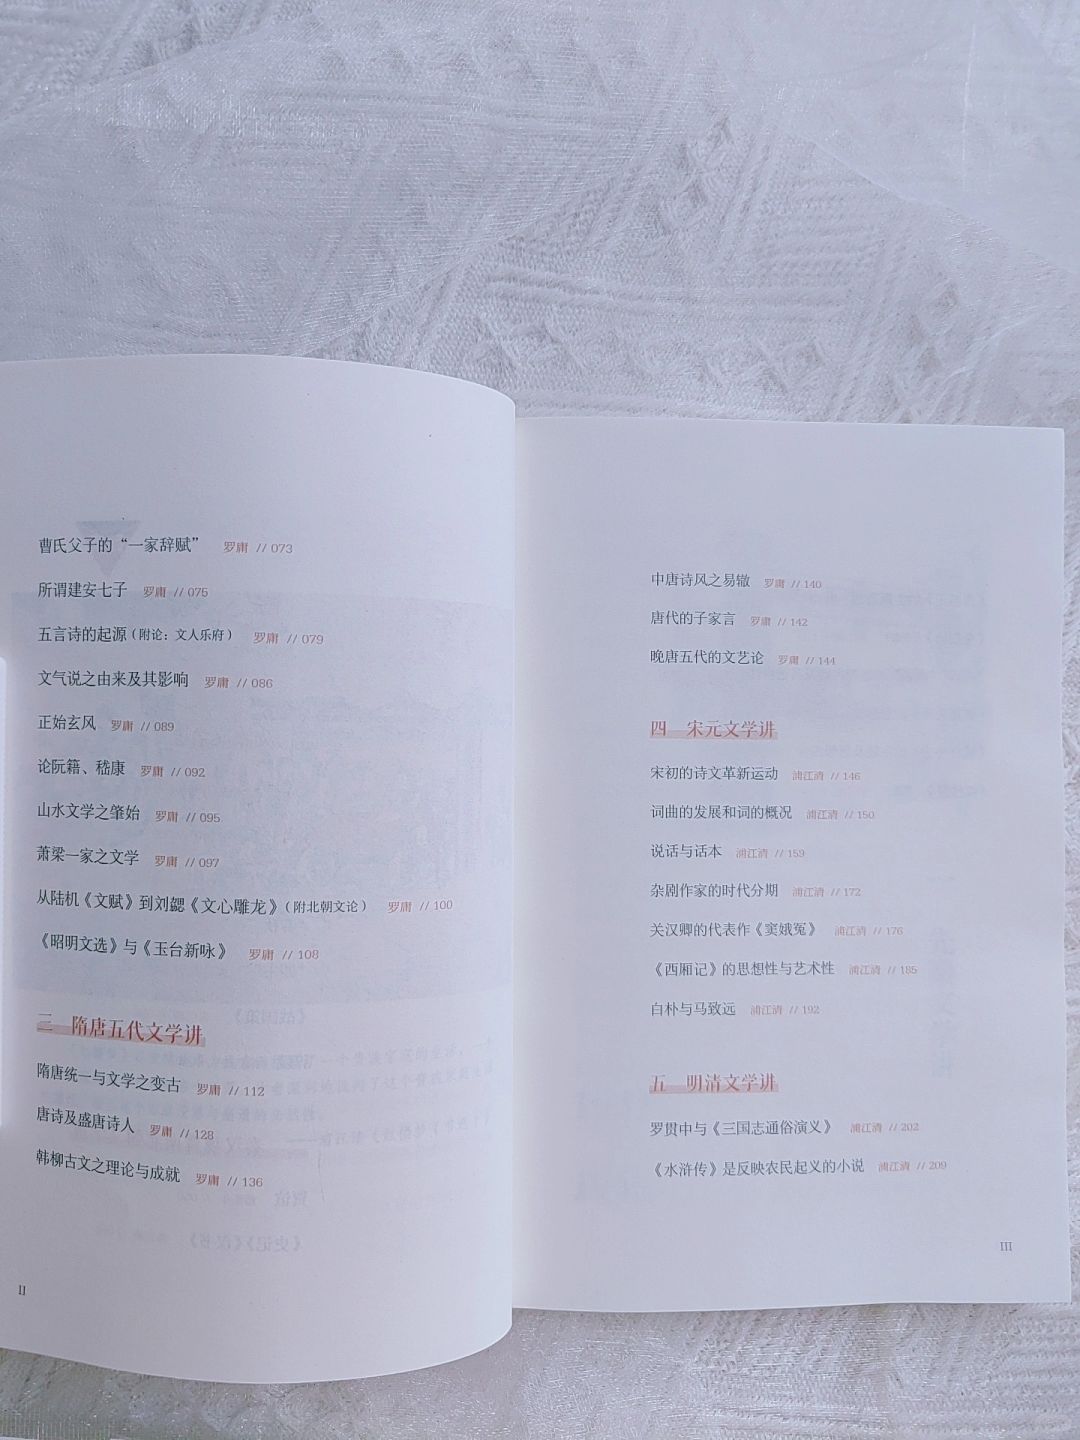 曹氏父子的“一家辞赋” 罗庸 // 073
所谓建安七子 罗庸 // 075
五言诗的起源（附论：文人乐府） 罗庸 // 079
文气说之由来及其影响 罗庸 // 086
正始玄风 罗庸 // 089
论阮籍、嵇康 罗庸 // 092
山水文学之肇始 罗庸 // 095
萧梁一家之文学 罗庸 // 097
从陆机《文赋》到刘勰《文心雕龙》（附北朝文论） 罗庸 // 100
《昭明文选》与《玉台新咏》 罗庸 // 108
三 隋唐五代文学讲
隋唐统一与文学之变古 罗庸 // 112
唐诗及盛唐诗人 罗庸 // 128
韩柳古文之理论与成就 罗庸 // 136
II
中唐诗风之易辙 罗庸 // 140
唐代的子家言 罗庸 // 142
晚唐五代的文艺论 罗庸 // 144
四 宋元文学讲
宋初的诗文革新运动 浦江清 // 146
词曲的发展和词的概况 浦江清 // 150
说话与话本 浦江清 // 159
杂剧作家的时代分期 浦江清 // 172
关汉卿的代表作《窦娥冤》 浦江清 // 176
《西厢记》的思想性与艺术性 浦江清 // 185
白朴与马致远 浦江清 // 192
五 明清文学讲
罗贯中与《三国志通俗演义》 浦江清 // 202
《水浒传》是反映农民起义的小说 浦江清 // 209
III